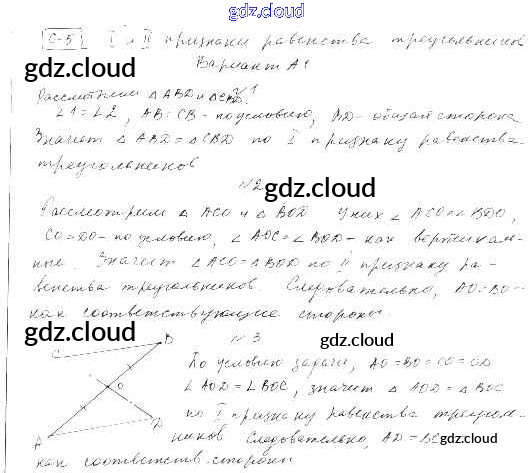 gdz.cloud
С-5 I и II признаки равенства треугольников
Вариант А1
gdz.cloud
№1
Рассмотрим △ ABD и △CBD.
∠1=∠2, AB=CB-по условию, BD-общая сторона
Значит △ ABD=△CBD по I признаку равенства
треугольников
№2
gdz.cloud
Рассмотрим △ ACO и △ BOD У них ∠ ACO=∠BDO,
CO=DO-по условию, ∠ AOC=∠BOD-как вертикаль-
ные. Значит △ACO=△BOD по II признаку ра-
венства треугольников. Следовательно, AO=BO-
как соответствующие стороны.
gdz.cloud
gdz.cloud
№3
C B
O
A D
По условию задачи, AO=BO=CO=OD
∠ AOD=∠BOC, значит △ AOD=△BOC
по I признаку равенства треуголь-
ников Следовательно, AD=
gdz.cloud
как соответств. стороны